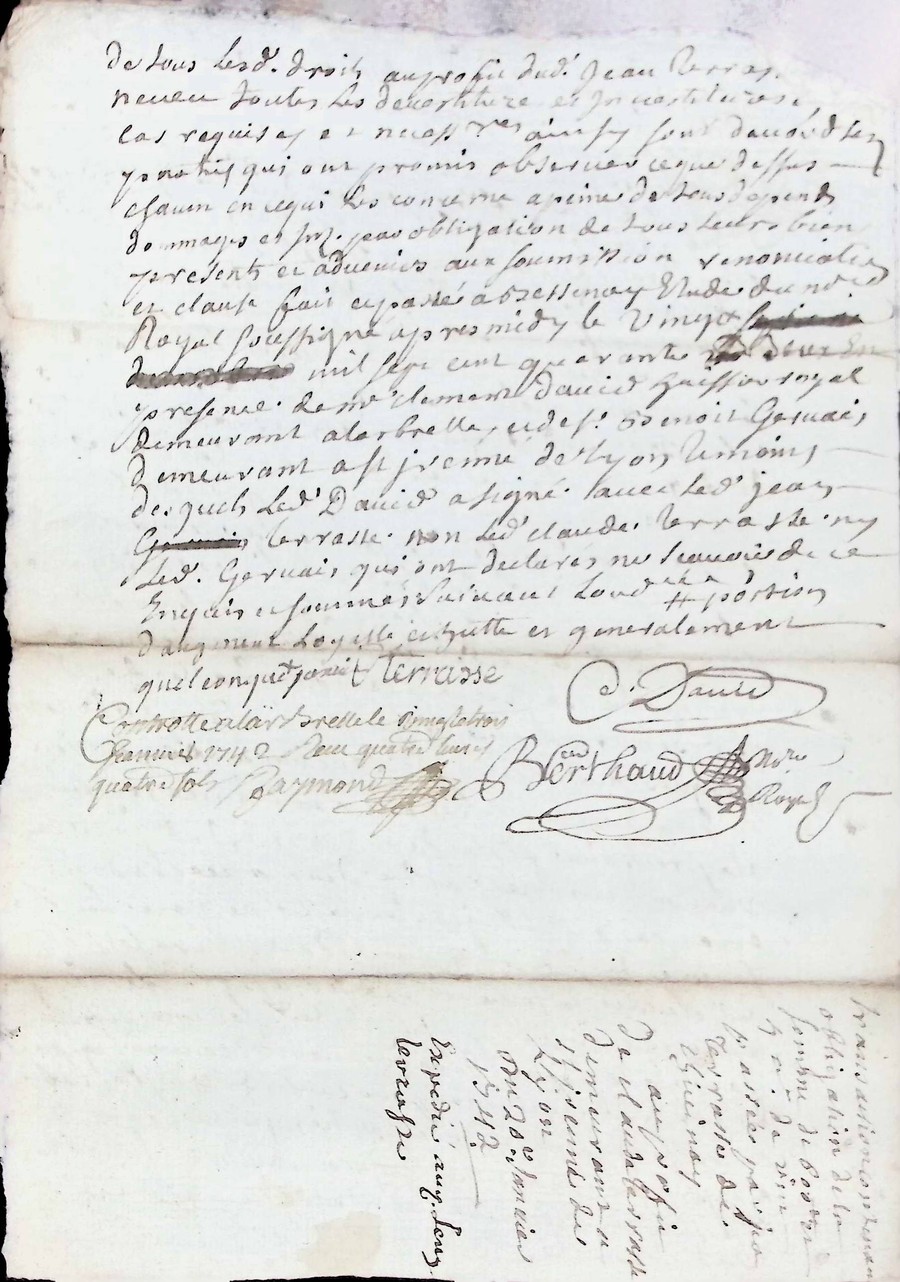 de tous lesd. droits au profit dud. Jean terras.
neveu toutes les devestiture et Investitures
cas requises et necess.res ainsy sont d'accord les
parties qui ont promis observer ce que dessus
chacun en ce qui les concerne a peine de tous depends
dommages et par obligation de tous leurs biens
presents et advenirs aux soumission renonciation
et clause fait et passé a Bessenay Etude du no.re
Royal soussigné apres midy le vingt
mil sept cent quarante deux En
presence de me clement David huissier royal
demeurant a larbrelle, et de s. Benoit Gervais
demeurant a st jrenne de lyon temoins
desquels led. David a signé avec led. jean
terrasse non led. claude terrasse ny
led. Gervais qui ont declares ne scavoir de ce
Enquis et sommés suivant portion
d'augment et generalement
quelconque terrasse
C. David
Controlle a larbresle le vingt trois
Janvier 1742 Recu quatre livres
quatre sols Raymond
Berthaud No.re
Royal
transaction contenant
obligation de la
somme de
passée par
terrasse de
au profit
de claude terrasse
demeurant a
st jrenne de
Lyon
du 20e Janvier
1742
Expedié aud. Jean
terrasse